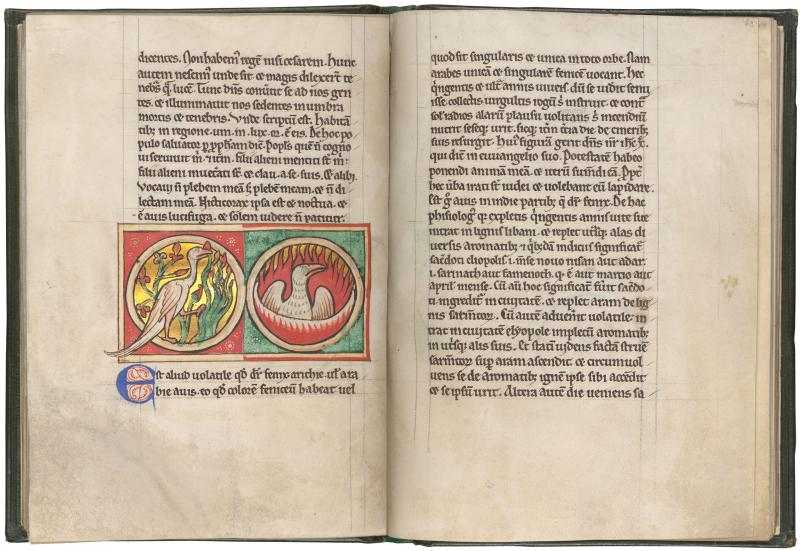 dicentes. Non habem' regē nisi cesarem. Hunc
autem nescim' unde sit. et magis dilexerr̄ te
neb̄s q̄ lucē. Tunc dn̄s conv̄tit se ad nos gen
tes. et illuminavit nos sedentes in umbra
mortis et tenebris. Unde scriptū est. habitā
tib; in regione .um. m. lux. or. ē. eis. De hoc po
pulo salvator p̄ pp̄ham dic̄. Popl̄s quē n̄ cogno
vi servivit m̄. et itm̄. filii alieni mentiti st̄ m̄.
filii alieni invet̄ati st̄ et clau. a. se. suis. Et alibi.
Vocavi n̄ plebem meā s; plebē meam. et n̄ di
lectam meā. Nicticorax ipsa est et noctua. et
ē avis lucifuga. et solem videre n̄ patitur.
Est aliud volatile qd̄ dr̄ fenix
bie avis. eo qd̄ colorē feniceū habeat vel
quod sit singularis et unica in toto orbe. Nam
arabes unicā et singularē fenicē vocant. Hec
q̄ngentis et ult̄ annis vivēs. dū se vidit senu
isse. collectis virgultis rogū s̄ instruit. et cont̄
sol' radios alarū plausu volitans s̄ incendiū
nutrit seseq; urit. sicq; t̄cia die de cinerib;
suis resurgit. Hui' figurā gerit dn̄s
qui dic̄ in evvangelio suo. Potestatē habeo
ponendi animā meā. et iterū sumdi eā. Ppt̄
hec v̄ba irati st̄ iudei et volebant eū lapidare.
Est g̊ avis in indie partib; q̄ dr̄ fenix. De hac
phisiolog' q̄ expletis q̄ngentis annis vite sue
intrat in lignis libani. et replet utsq; alas di
versis aromatib; et q̄b;dā indiciis significat̄
sacdoti eliopolis i. m̄se novo nisan aut adar.
i. sarinath aut famenoth. q̄ ē aut martio aut
aprili mense. Cū aū hoc significatū fuit sacdo
ti. ingredit' in civitatē. et replet aram de lig
nis sarmtor. Cū autē advenit volatile in
trat in civitatē elyopole impletū aromatib;
in utsq; alis suis. Et statī videns factā struē
sarmtor sup̄ aram ascendit. et circumvol
vens se de aromatib; ignē ipse sibi accēdit
et se ipsū urit. Altera autē die veniens sa